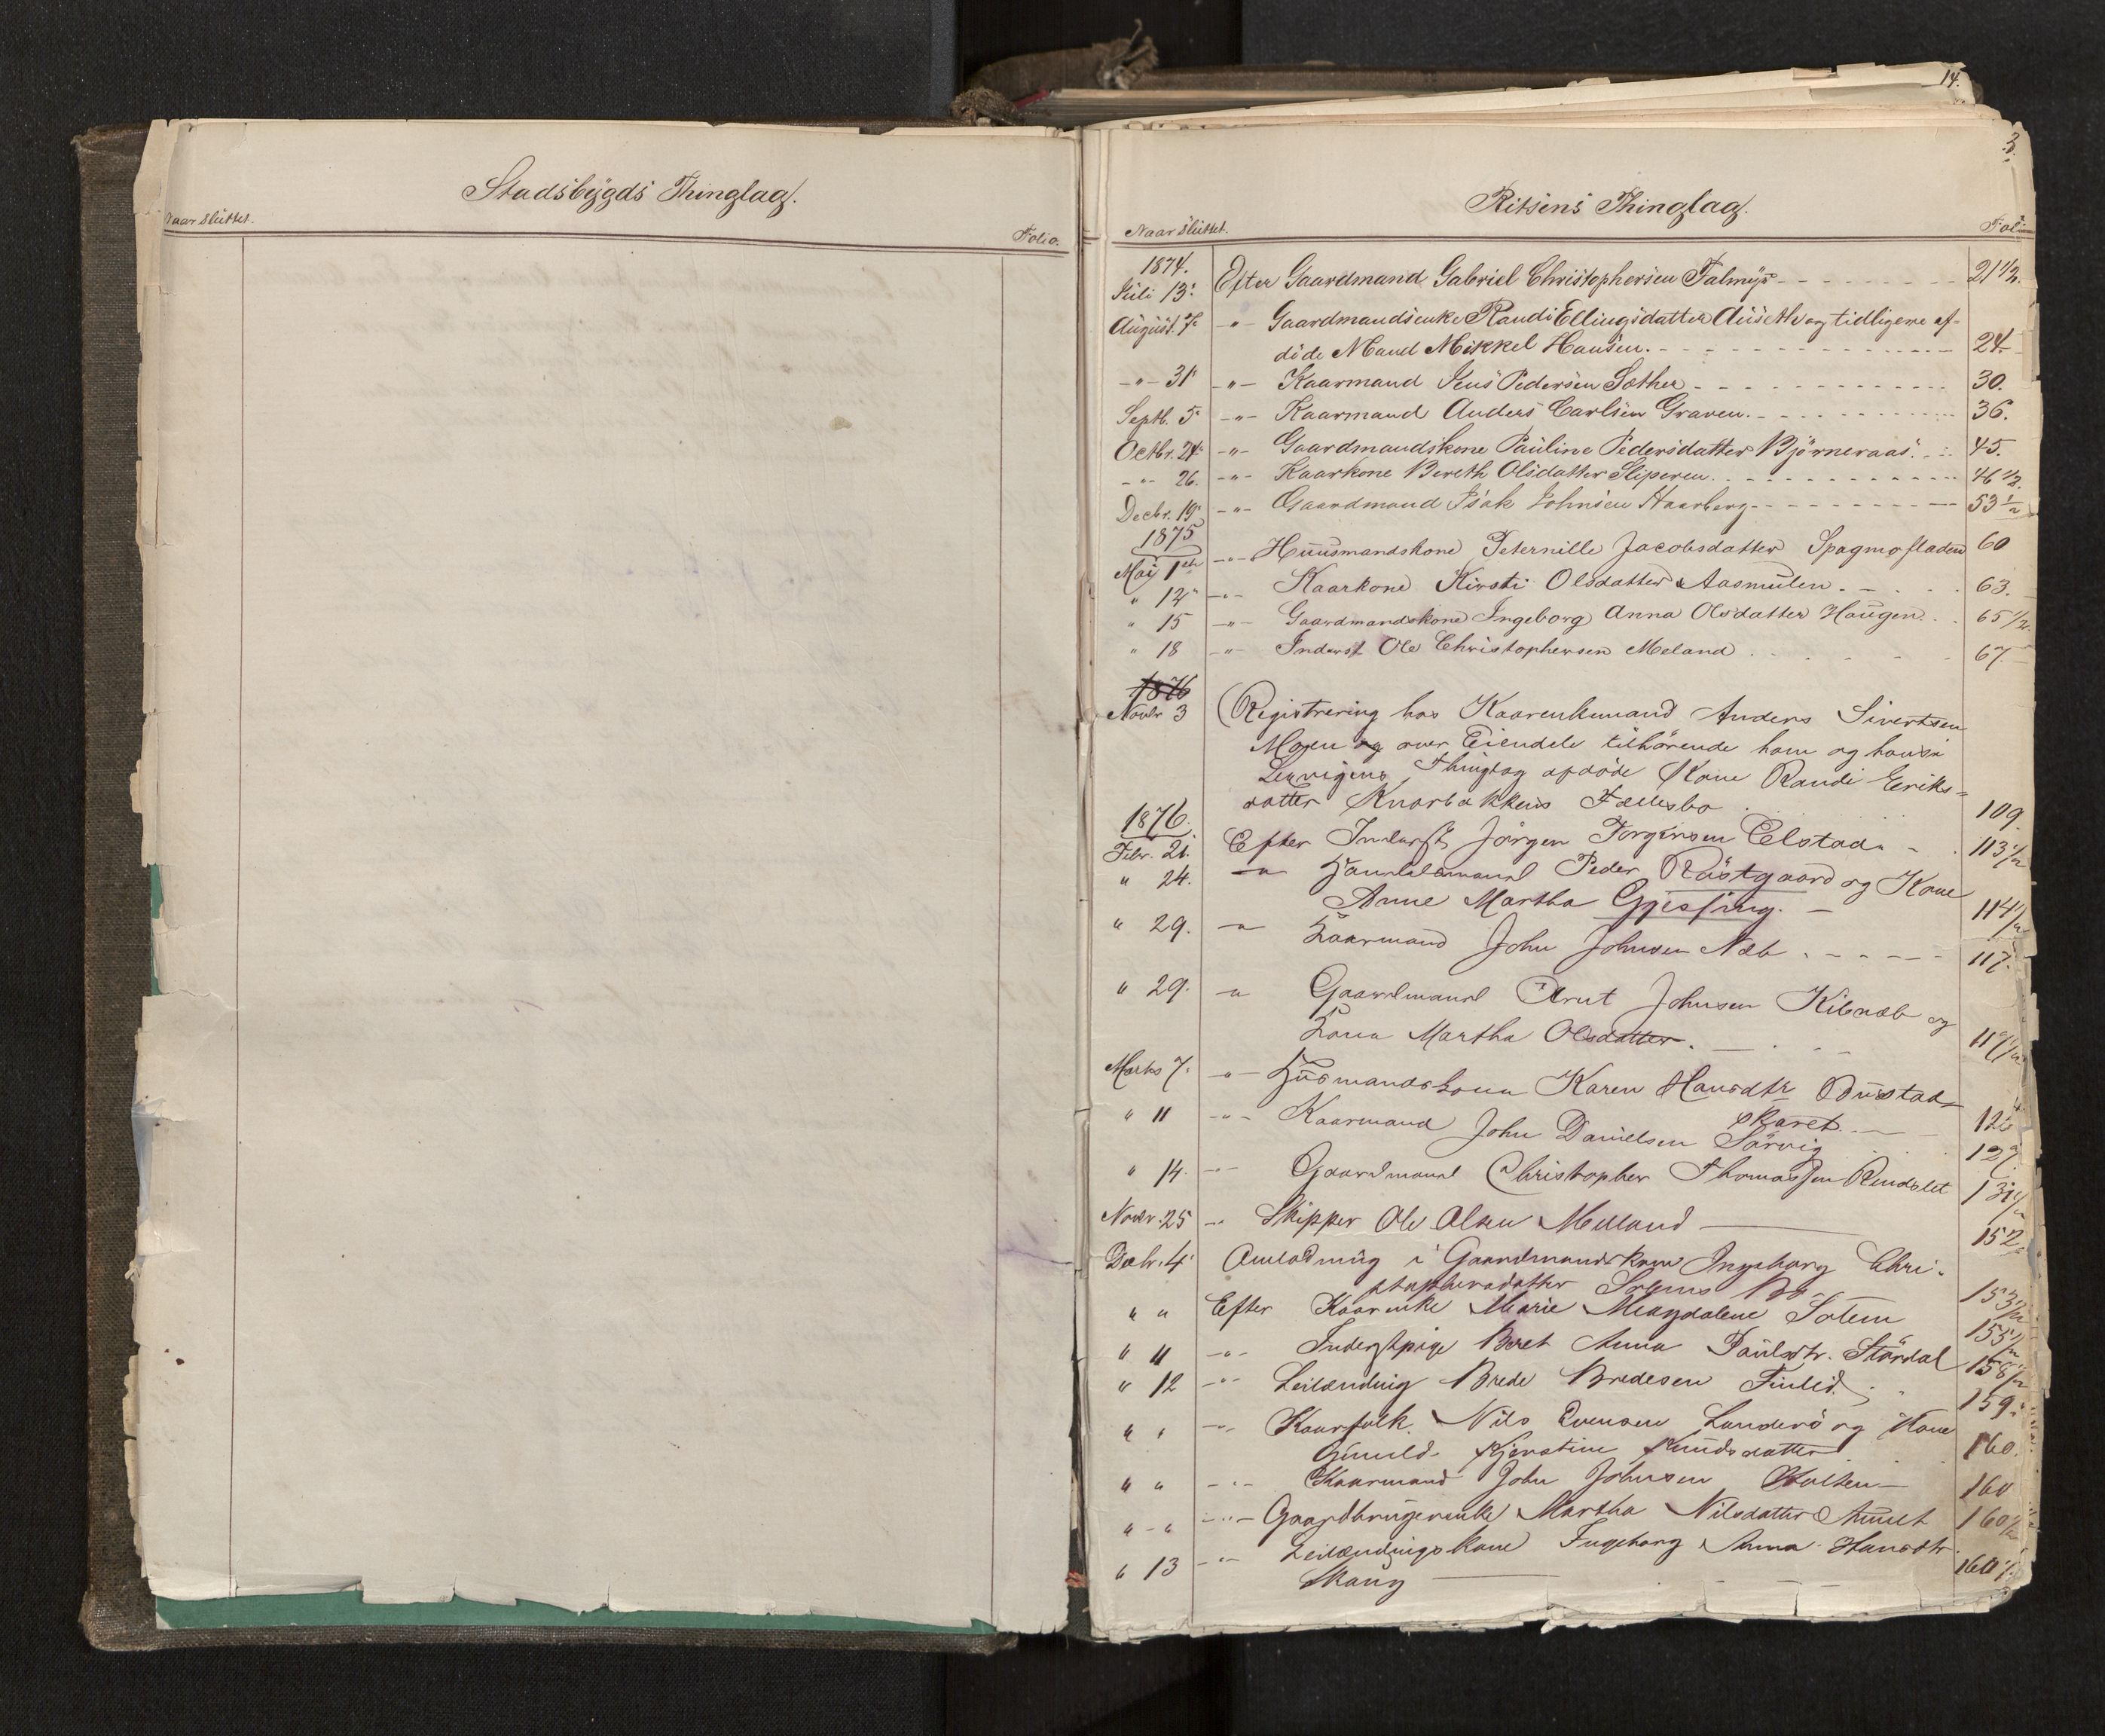 Stadsbygds Thinglag.
Naar sluttet.
Folio.
14.
3.
Ritsens Thinglag.
Naar sluttet.
Folio
1874.
Juli 13. Efter Gaardmand Gabriel Christophersen 21 1/2.
August. 7. -"- Gaardmandsenke Randi Ellingsdatter Auseth og tidligere af-
döde Mand Mikkel Hansen. 24.
-"- 31. -"- Kaarmand Jens Pedersen Sæther 30.
Septb. 5. -"- Kaarmand Anders Carlsen Graven. 36.
Octbr. 24. -"- Gaardmandskone Pauline Pedersdatter Björneraas. 45.
-"- 26. -"- Kaarkone Bereth Olsdatter Sliperen. 46 1/2.
Decbr. 19. -"- Gaardmand Isak Johnsen Haarberg 53 1/2
1875
Mai 1ste -"- Huusmandskone Peternille Jacobsdatter Spagmofladen 60
" 12. -"- Kaarkone Kirsti Olsdatter Aasmulen. 63.
" 15 -"- Gaardmandskone Ingeborg Anna Olsdatter Haugen. 65 1/2.
" 18 -"- Inderst Ole Christophersen Meland 67.
1876
Novbr 3 Registrering hos Kaarenkemand Anders Sivertsen
Moen og over Eiendele tilhörende ham og hans i
Lexvigens Thinglag afdöde Kone Randi Eriks=
datter Knarbakkens Fællesbo 109.
1876.
Febr. 21. Efter Inderst Jörgen Jörgensen Elstad. 113 1/2
" 24. -"- Handelsmand Peder Röstgaard og Kone
Anne Martha Gjessing. 114 1/2
" 29. -"- Kaarmand John Johnsen Næb 117.
" 29. -"- Gaardmand Arnt Johnsen Kilnæb og
Kone Martha Olsdatter. 117 1/2
Marts 7. -"- Husmandskone Karen Hansdtr Bustad=
skaret. 126
" 11 -"- Kaarmand John Danielsen Sörvig 127.
" 14. -"- Gaardmand Christopher Thomassen Rindalet 131 1/2
Novbr. 25 -"- Skipper Ole Olsen Melland 152
Decbr. 4. Anledning i Gaardmandskone Ingeborg Chri-
stophersdatter Solems Bo 153 1/2
" " Efter Kaarenke Marie Magdalene Solem 155 1/2
" 11 -"- Inderstpige Beret Anna Paulsdtr. Stördal 158 1/2
" 12 -"- Leilænding Brede Bredesen Finlid. 159.
" " -"- Kaarfolk Nils Evensen Landerö og Kone
Gunild Kjerstine Knudsdatter 160.
" " -"- Kaarmand John Johnsen Holten 160
" - " -"- Gaardbrugerenke Martha Nilsdatter Auset 160 1/2
" 13 -"- Leilændingskone Ingeborg Anna Hansdtr.
Skaug 160 1/2